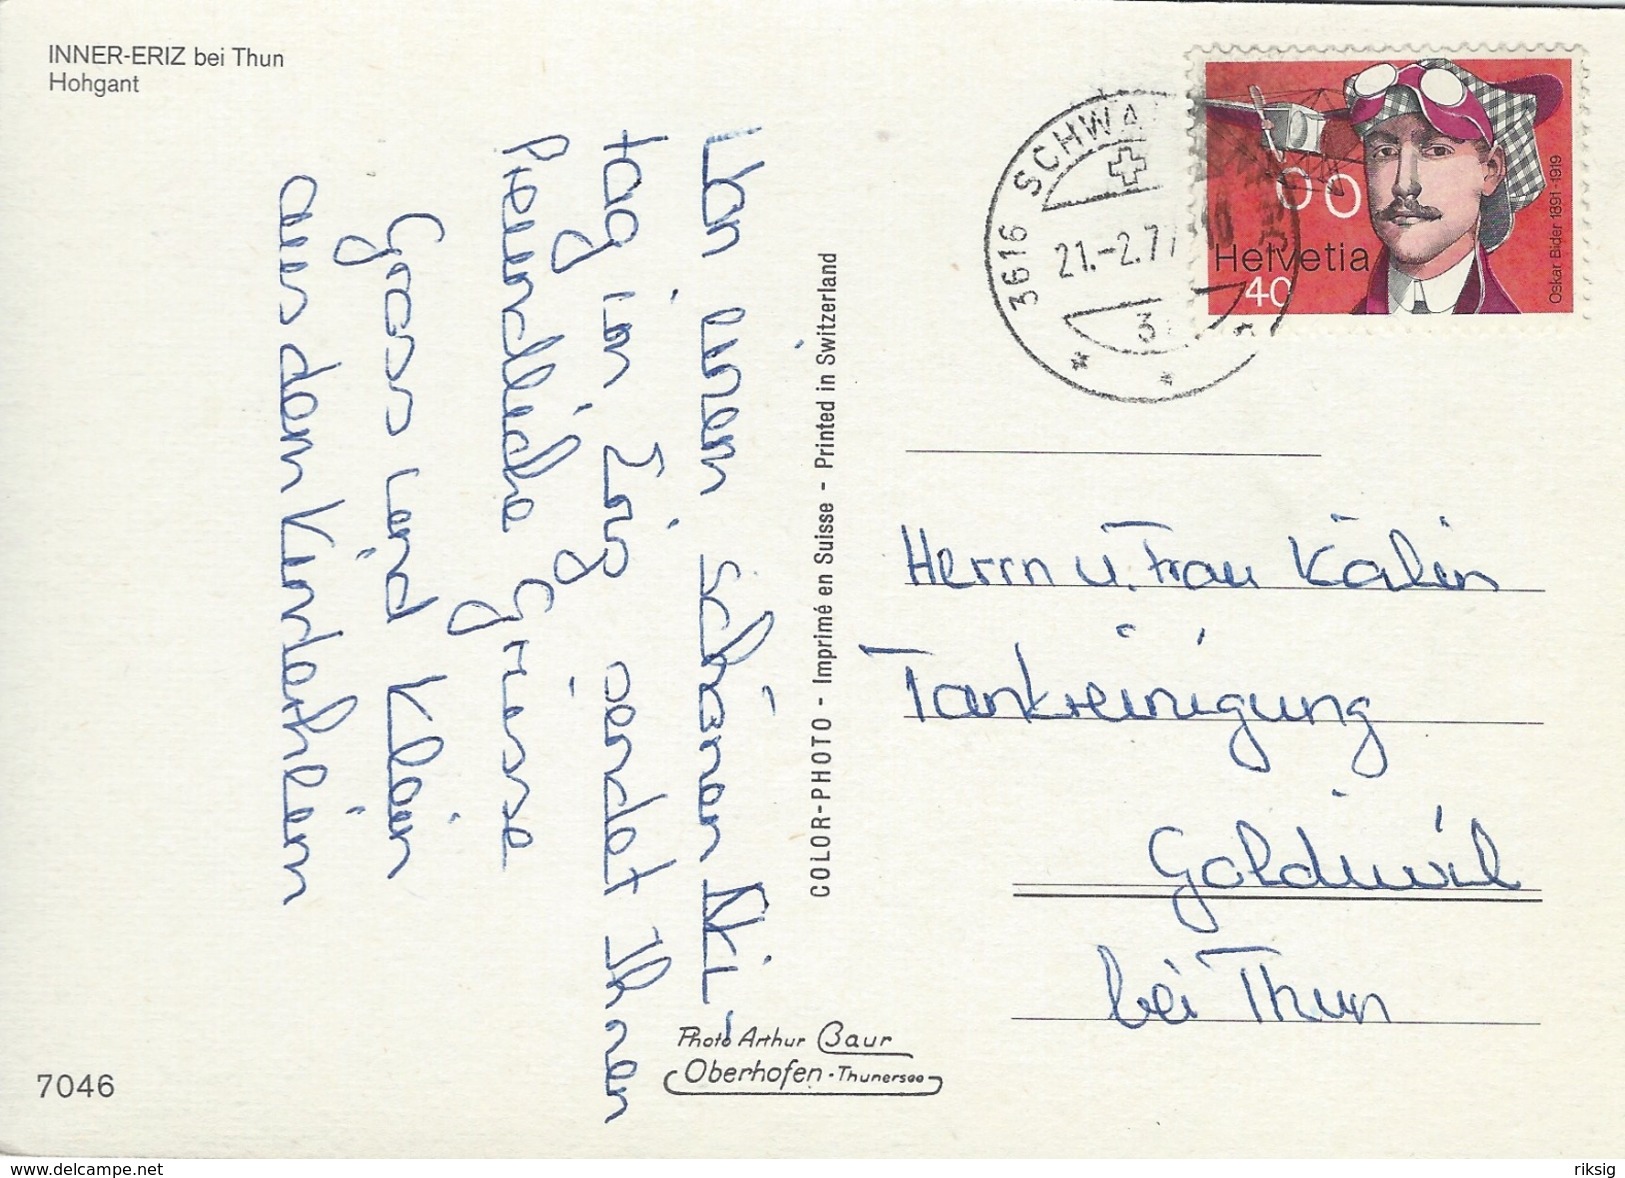 INNER-ERIZ bei Thun
Hohgant
Von einem schönen Ski-
tag im Eriz sendet Ihnen
Freundliche Grüsse
Gross und Klein
aus dem Kinderheim
COLOR-PHOTO - Imprimé en Suisse - Printed in Switzerland
3616 SCHWA
21.-2.77
3
Helvetia
40
Oskar Bider 1891-1919
Herrn u. Frau Kälin
Tankreinigung
Goldiwil
bei Thun
Photo Arthur Baur
Oberhofen-Thunersee
7046
www.delcampe.net
riksig